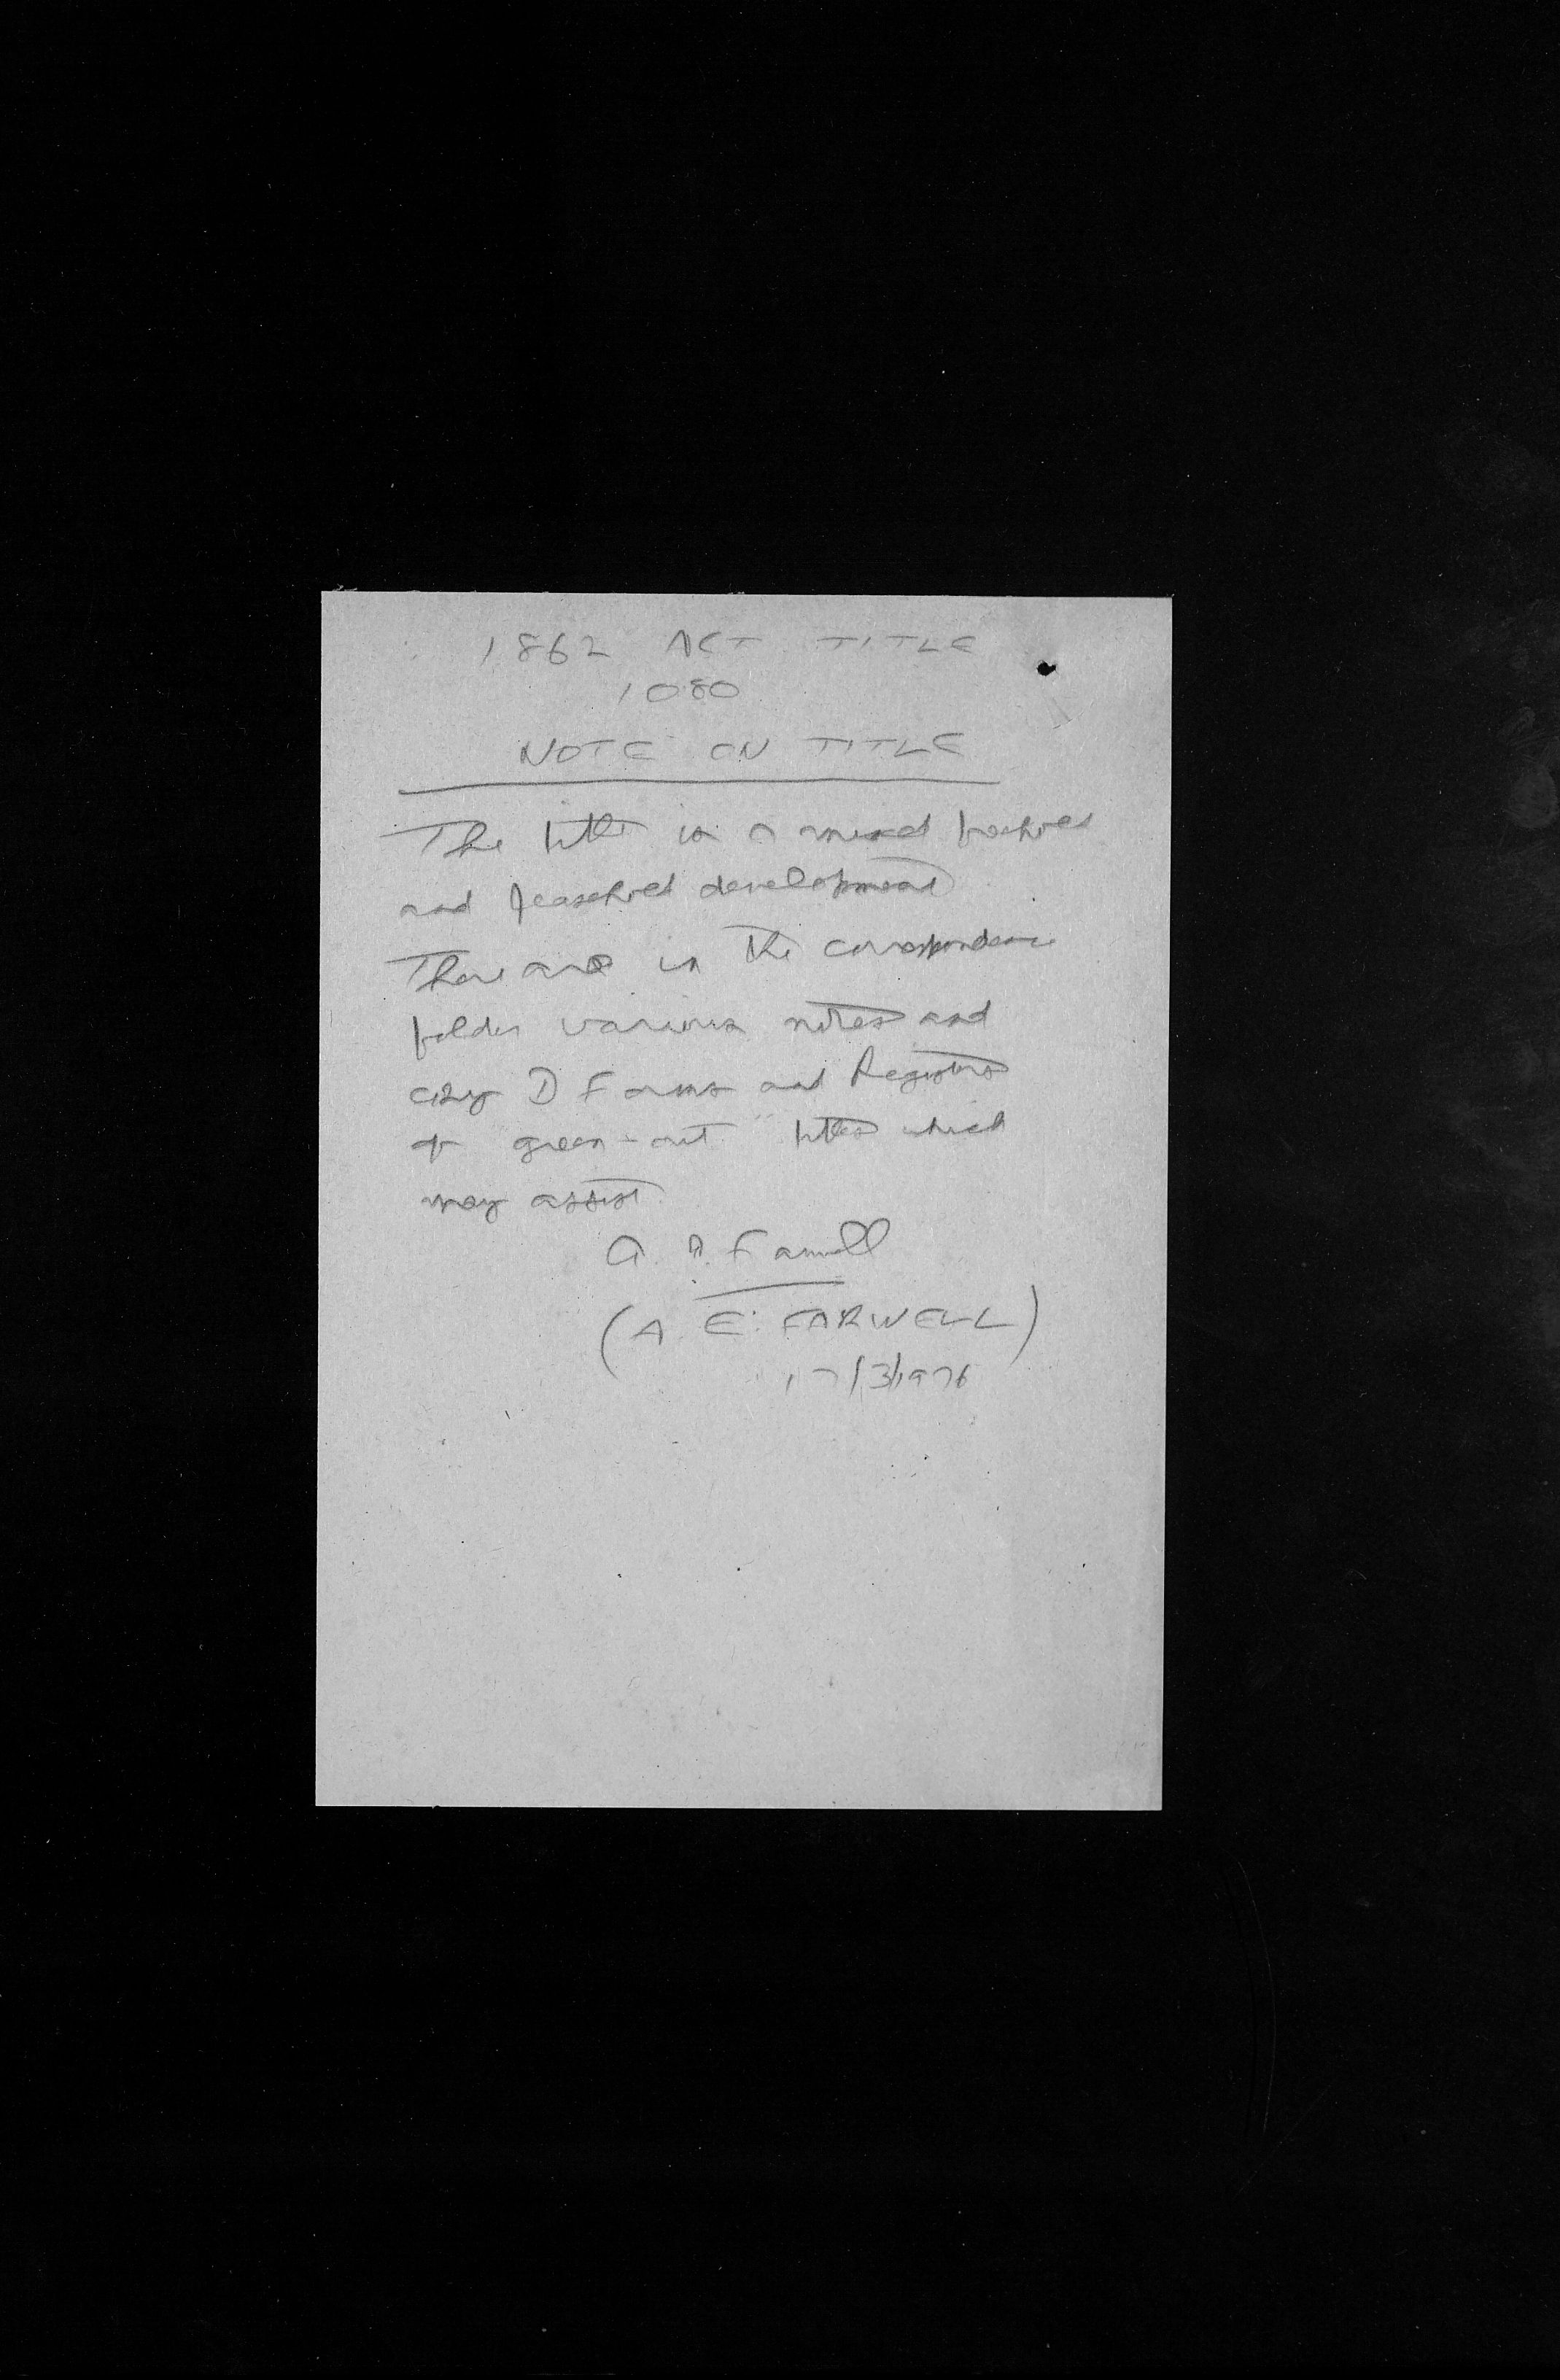 1862 ACT TITLE
1080
NOTE ON TITLE
The title is a mixed freehold
and leasehold development
There are in the correspondence
folder various notes and
copy D Forms and Registers
of green-out titles which
may assist
A. E. Farwell
(A. E. FARWELL)
17/3/1976